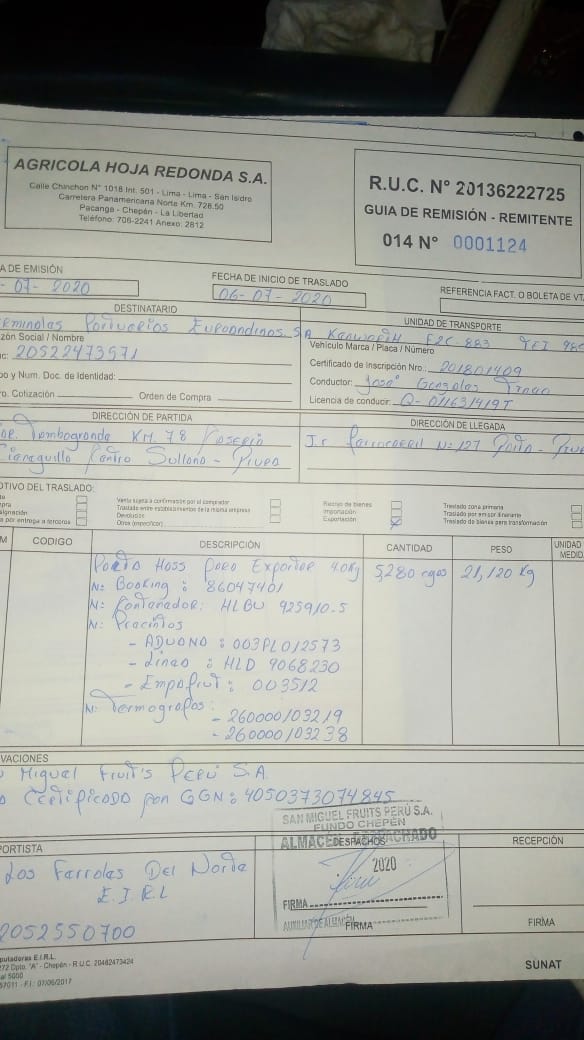 AGRICOLA HOJA REDONDA S.A.
Calle Chinchon N° 1018 Int. 501 - Lima - Lima - San Isidro
Carretera Panamericana Norte Km. 728.50
Pacanga - Chepén - La Libertad
Teléfono: 706-2241 Anexo: 2812
R.U.C. N° 20136222725
GUIA DE REMISIÓN - REMITENTE
014 N° 0001124
A DE EMISIÓN
- 07- 2020
FECHA DE INICIO DE TRASLADO
06-07-2020
REFERENCIA FACT. O BOLETA DE VTA
DESTINATARIO
Portuarios Euroandinos S.A
zón Social / Nombre
20522473571
o y Num. Doc. de Identidad:
o. Cotización Orden de Compra
UNIDAD DE TRANSPORTE
F2C-883
Vehículo Marca / Placa / Número
Certificado de Inscripción Nro.: 201801409
Conductor: José Gonzales
Licencia de conducir:
DIRECCIÓN DE PARTIDA
KM. 78
Sullana - Piura
DIRECCIÓN DE LLEGADA
Jr N: 127 Paita -
OTIVO DEL TRASLADO:
Venta sujeta a confirmación por el comprador
Traslado entre establecimientos de la misma empresa
Devolución
Otros (especificar)
a por entrega a terceros
Recojo de bienes
Importación
Exportación
Traslado zona primaria
Traslado por emisor itinerante
Traslado de bienes para transformación
M CODIGO DESCRIPCIÓN CANTIDAD PESO UNIDAD MEDID.
Hass Para Exportar 4.0Kg 5,280 21,120 Kg
N: Booking : 86047401
N: Contenedor: HLBU 925910-5
N: Precintos
- ADUANA : 003PL012573
- Linea : HLD 9068230
- Empafrut : 003512
N: Termografos :
- 260000103219
- 260000103238
VACIONES
Miguel Fruit's PERÚ S.A.
Certificado por GGN: 4050373074845
SAN MIGUEL FRUITS PERÚ S.A.
FUNDO CHEPÉN
ALMACEN DESPACHADO
DESPACHOS
2020
FIRMA
AUXILIAR DE ALMACÉN
FIRMA
PORTISTA
Los Farroles Del Norte
E.I.R.L
2052550700
RECEPCIÓN
FIRMA
putadoras E.I.R.L.
272 Dpto. "A" - Chepén - R.U.C. 20482473424
al 5000
57011 - F.I.: 07/06/2017
SUNAT